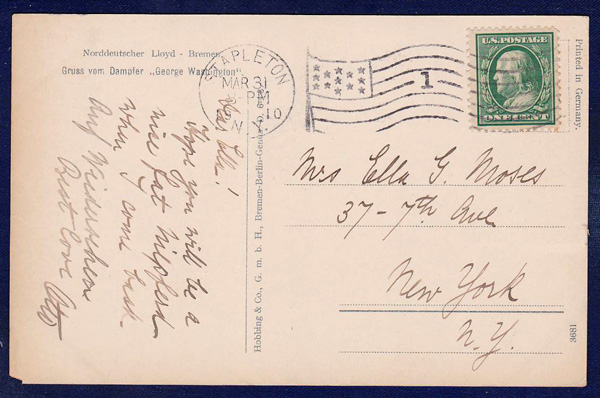 Norddeutscher Lloyd - Bremen
Gruss vom Dampfer „George Washington"
STAPLETON
MAR 31
PM
10
N.Y.
1
U.S. POSTAGE
ONE CENT
Printed in Germany.
Dear Ella!
Hope you will be a
nice fat
when I come back
Auf Wiedersehen
Best Love Otto
Hobbing & Co., G. m. b. H., Bremen-Berlin-Genua
Mrs Ella G. Moses
37 - 7th Ave.
New York
N.Y.
3681